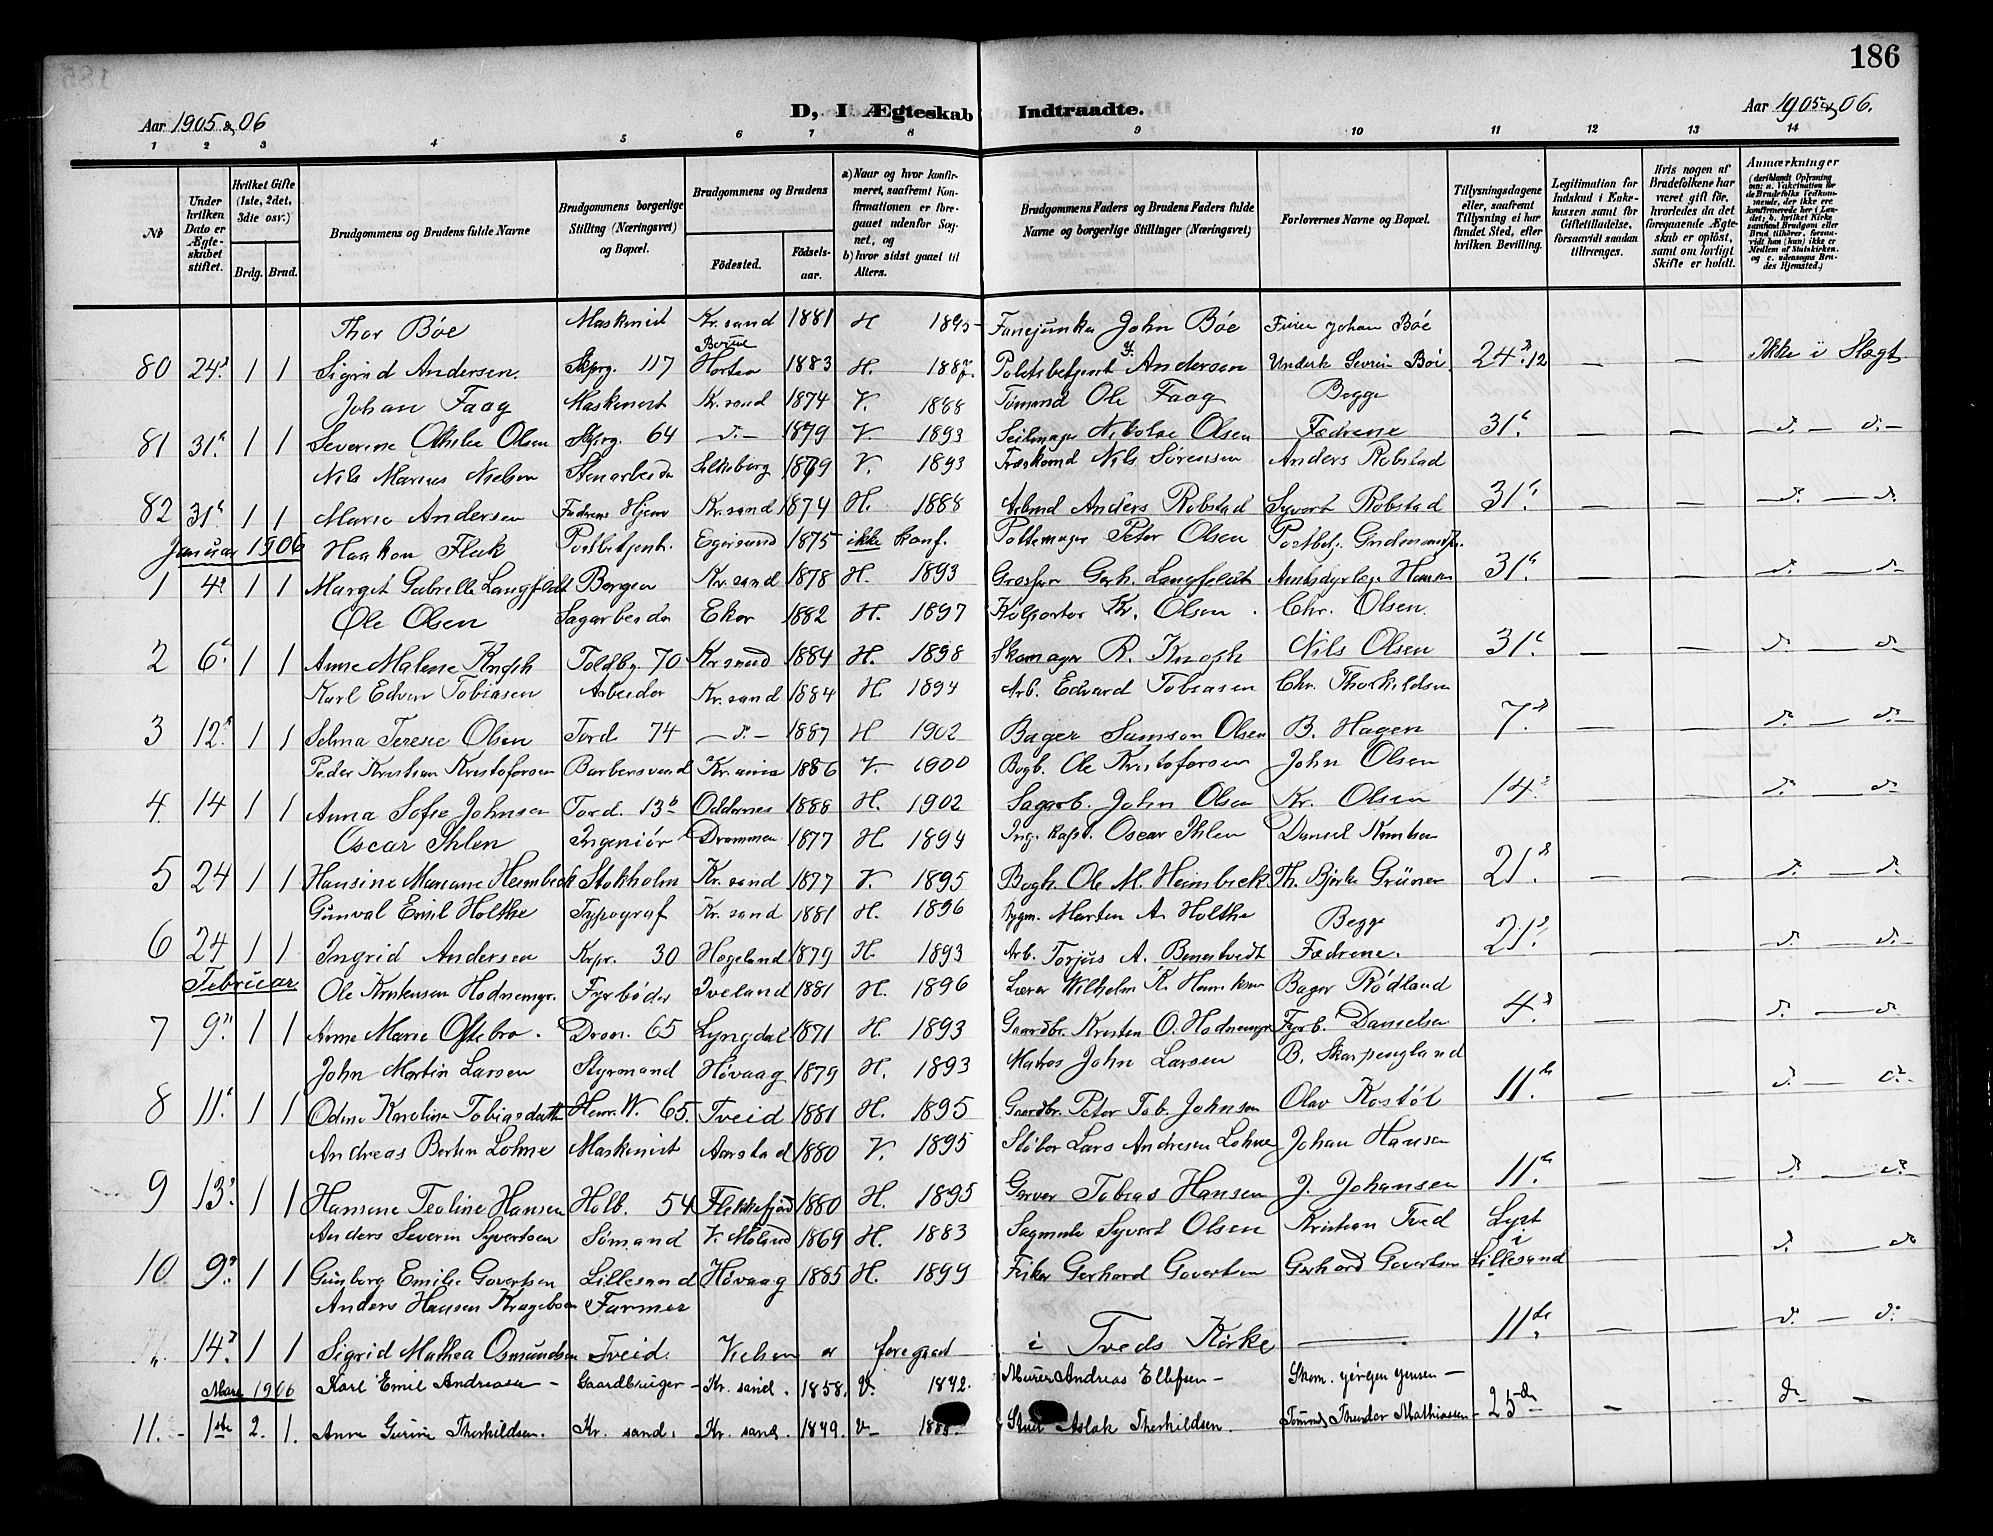 186
D, I Ægteskab Indtraadte.
Aar 1905 & 06
Aar 1905 & 06.
1 2 3 4 5 6 7 8 9 10 11 12 13 14
№
Under hvilken Dato er Ægteskabet stiftet.
Hvilket Gifte (1ste, 2det, 3die osv.)
Brdg. Brud.
Brudgommens og Brudens fulde Navne
Brudgommens borgerlige Stilling (Næringsvei) og Bopæl.
Brudgommens og Brudens
Fødested. Fødselsaar.
a) Naar og hvor konfirmeret, saafremt Konfirmationen er foregaaet udenfor Sognet, og
b) hvor sidst gaaet til Alters.
Brudgommens Faders og Brudens Faders fulde Navne og borgerlige Stillinger (Næringsvei)
Forlovernes Navne og Bopæl.
Tillysningsdagene eller, saafremt Tillysning ei har fundet Sted, efter hvilken Bevilling.
Legitimation for Indskud i Enkekassen samt for Giftetilladelse, forsaavidt saadan tiltrænges.
Hvis nogen af Brudefolkene har været gift før, hvorledes da det foregaaende Ægteskab er opløst, samt om lovligt Skifte er holdt.
Anmærkninger
Thor Bøe Maskinist Kr.sand 1881 H 1895 John Bøe Johan Bøe
80 24 1 1 Sigrid Andersen. 117 Horten 1883 H. Andersen Severin Bøe 24 12 — — Ikke i Slægt
Johan Faag Maskinist Kr.sand 1874 V. 1888 Tømmd Ole Faag Begge
81 31 1 1 Severine Othilie Olsen 64 — 1879 V. 1893 Seilmager Nikolai Olsen Fædrene 31 — — —
Nils Marius Nielsen Stenarbeider Silkeborg 1869 V. 1893 Nils Sørensen Anders Robstad
82 31 1 1 Marie Andersen Fædrene Hjem Kr.sand 1874 H. 1888 Anders Robstad Syvert Robstad 31 — — —
Januar 1906 Haakon Fluk Postbetjent Egersund 1875 ikke konf. Pottemager Peter Olsen
1 4 1 1 Marget Gabrielle Langfeldt Bergen Kr.sand 1878 H. 1893 Gerh. Langfeldt Amtsdyrlæge Hansen 31 — — —
Ole Olsen Sagarbeider Eker 1882 H. 1897 Kolportør Kr. Olsen Chr. Olsen.
2 6 1 1 Anne Malene Knoph Toldbg 70 Kr.sand 1884 H. 1898 Skomager R. Knoph Nils Olsen 31 — — —
Karl Edvin Tobiasen Arbeider Kr.sand 1884 H. 1894 Arb. Edvard Tobiasen Chr. Thorkildsen
3 12 1 1 Selma Teresie Olsen Tord. 74 — 1887 H 1902 Bager Samson Olsen B. Hagen 7 — — —
Peder Kristian Kristofersen Barbersvend Kr.ania 1886 V. 1900 Bogb. Ole Kristofersen John Olsen
4. 14 1 1 Anna Sofie Johnsen Tord. 13b Oddernes 1888 H. 1902 Sagarb. John Olsen Kr. Olsen 14 — — —
Oscar Ihlen Ingeniør Drammen 1877 H. 1894 Ing. Kapt. Oscar Ihlen Daniel Knutsen
5 24 1 1 Hansine Mariane Heimbeck Stokholm Kr.sand 1877 V. 1895 Bogh. Ole M. Heimbeck Th. Bjerke Grüner 21 — — —
Gunval Emil Holthe Typograf Kr.sand 1881 H. 1896 Bygm. Marten A. Holthe Begge
6 24 1 1 Ingrid Andersen Krpr. 30 Hægeland 1879 H. 1893 Arb. Torjus A. Benestvedt Fædrene. 21 — — —
Februar Ole Kristensen Hodnemyr Fyrbøder Iveland 1881 H. 1896 Lærer Wilhelm K. Henriksen Bager Rødland
7 9 1 1 Anne Marie Oftebro. Dron. 65 Lyngdal 1871 H. 1893 Gaardbr. Kristen O. Hodnemyr Fyrb. Danielsen 4 — — —
John Martin Larsen Styrmand Høvaag 1879 H. 1893 Matros John Larsen B. Skarpengland
8 11 1 1 Odine Karoline Tobiasdatter Henr. W. 65. Tveid 1881 H. 1895 Gaardbr. Peter Tob. Johnsen Olav Kostøl 11 — — —
Andreas Bertin Lohne Maskinist Aarstad 1880 V. 1895 Støber Lars Andresen Lohne Johan Hansen
9 13 1 1 Hansine Teoline Hansen Holb. 54 Flekkefjord 1880 H. 1895 Garver Tobias Hansen J. Johansen 11 — — —
Anders Severin Syvertsen Sømand V. Moland 1869 H. 1883 Sagmste Syvert Olsen Kristian Tved Lyst
10. 9 1 1 Gunborg Emilie Govertsen Lillesand Høvaag 1885 H. 1899 Fisker Gerhard Govertsen Gerhard Govertsen i Lillesand — — —
Anders Hansen Krageboen Farmer
" 14 1 1 Sigrid Mathea Osmundsen Tveid. Vielsen er foregaaet i Tveds Kirke — 11 — — —
Mars 1906 Karl Emil Andreasen — Gaardbruger — Kr. sand. 1858. V. 1872. Murer Andreas Ellefsen — Skom. Jørgen Jensen —
11. — 1ste 2. 1. Anne Gurine Therkildsen. Kr. sand. Kr. sand. 1849. V— Aslak Therkildsen. Mathiassen — 25 — — —